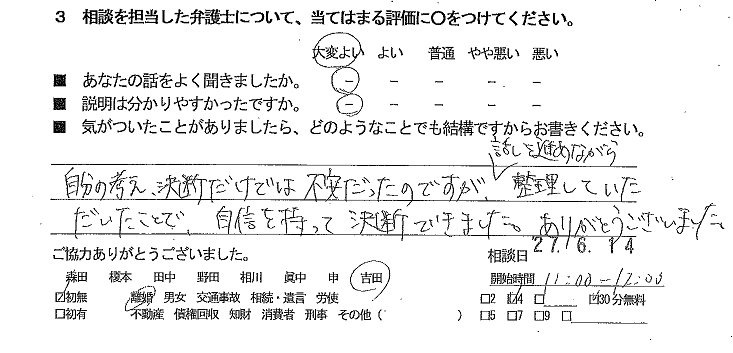 3 相談を担当した弁護士について、当てはまる評価に〇をつけてください。
大変よい よい 普通 やや悪い 悪い
■ あなたの話をよく聞きましたか。 － － － － －
■ 説明は分かりやすかったですか。 － － － － －
■ 気がついたことがありましたら、どのようなことでも結構ですからお書きください。
話しを進めながら
自分の考え、決断だけでは不安だったのですが、整理していた
だいたことで、自信を持って決断できました。ありがとうございました。
ご協力ありがとうございました。 相談日 27.6.14
森田 榎本 田中 野田 相川 眞中 申 吉田 開始時間 11:00-12:00
☑初無 離婚 男女 交通事故 相続・遺言 労使 □2 ☑4 □ ☑30分無料
□初有 不動産 債権回収 知財 消費者 刑事 その他 ( ) □5 □7 □9 □